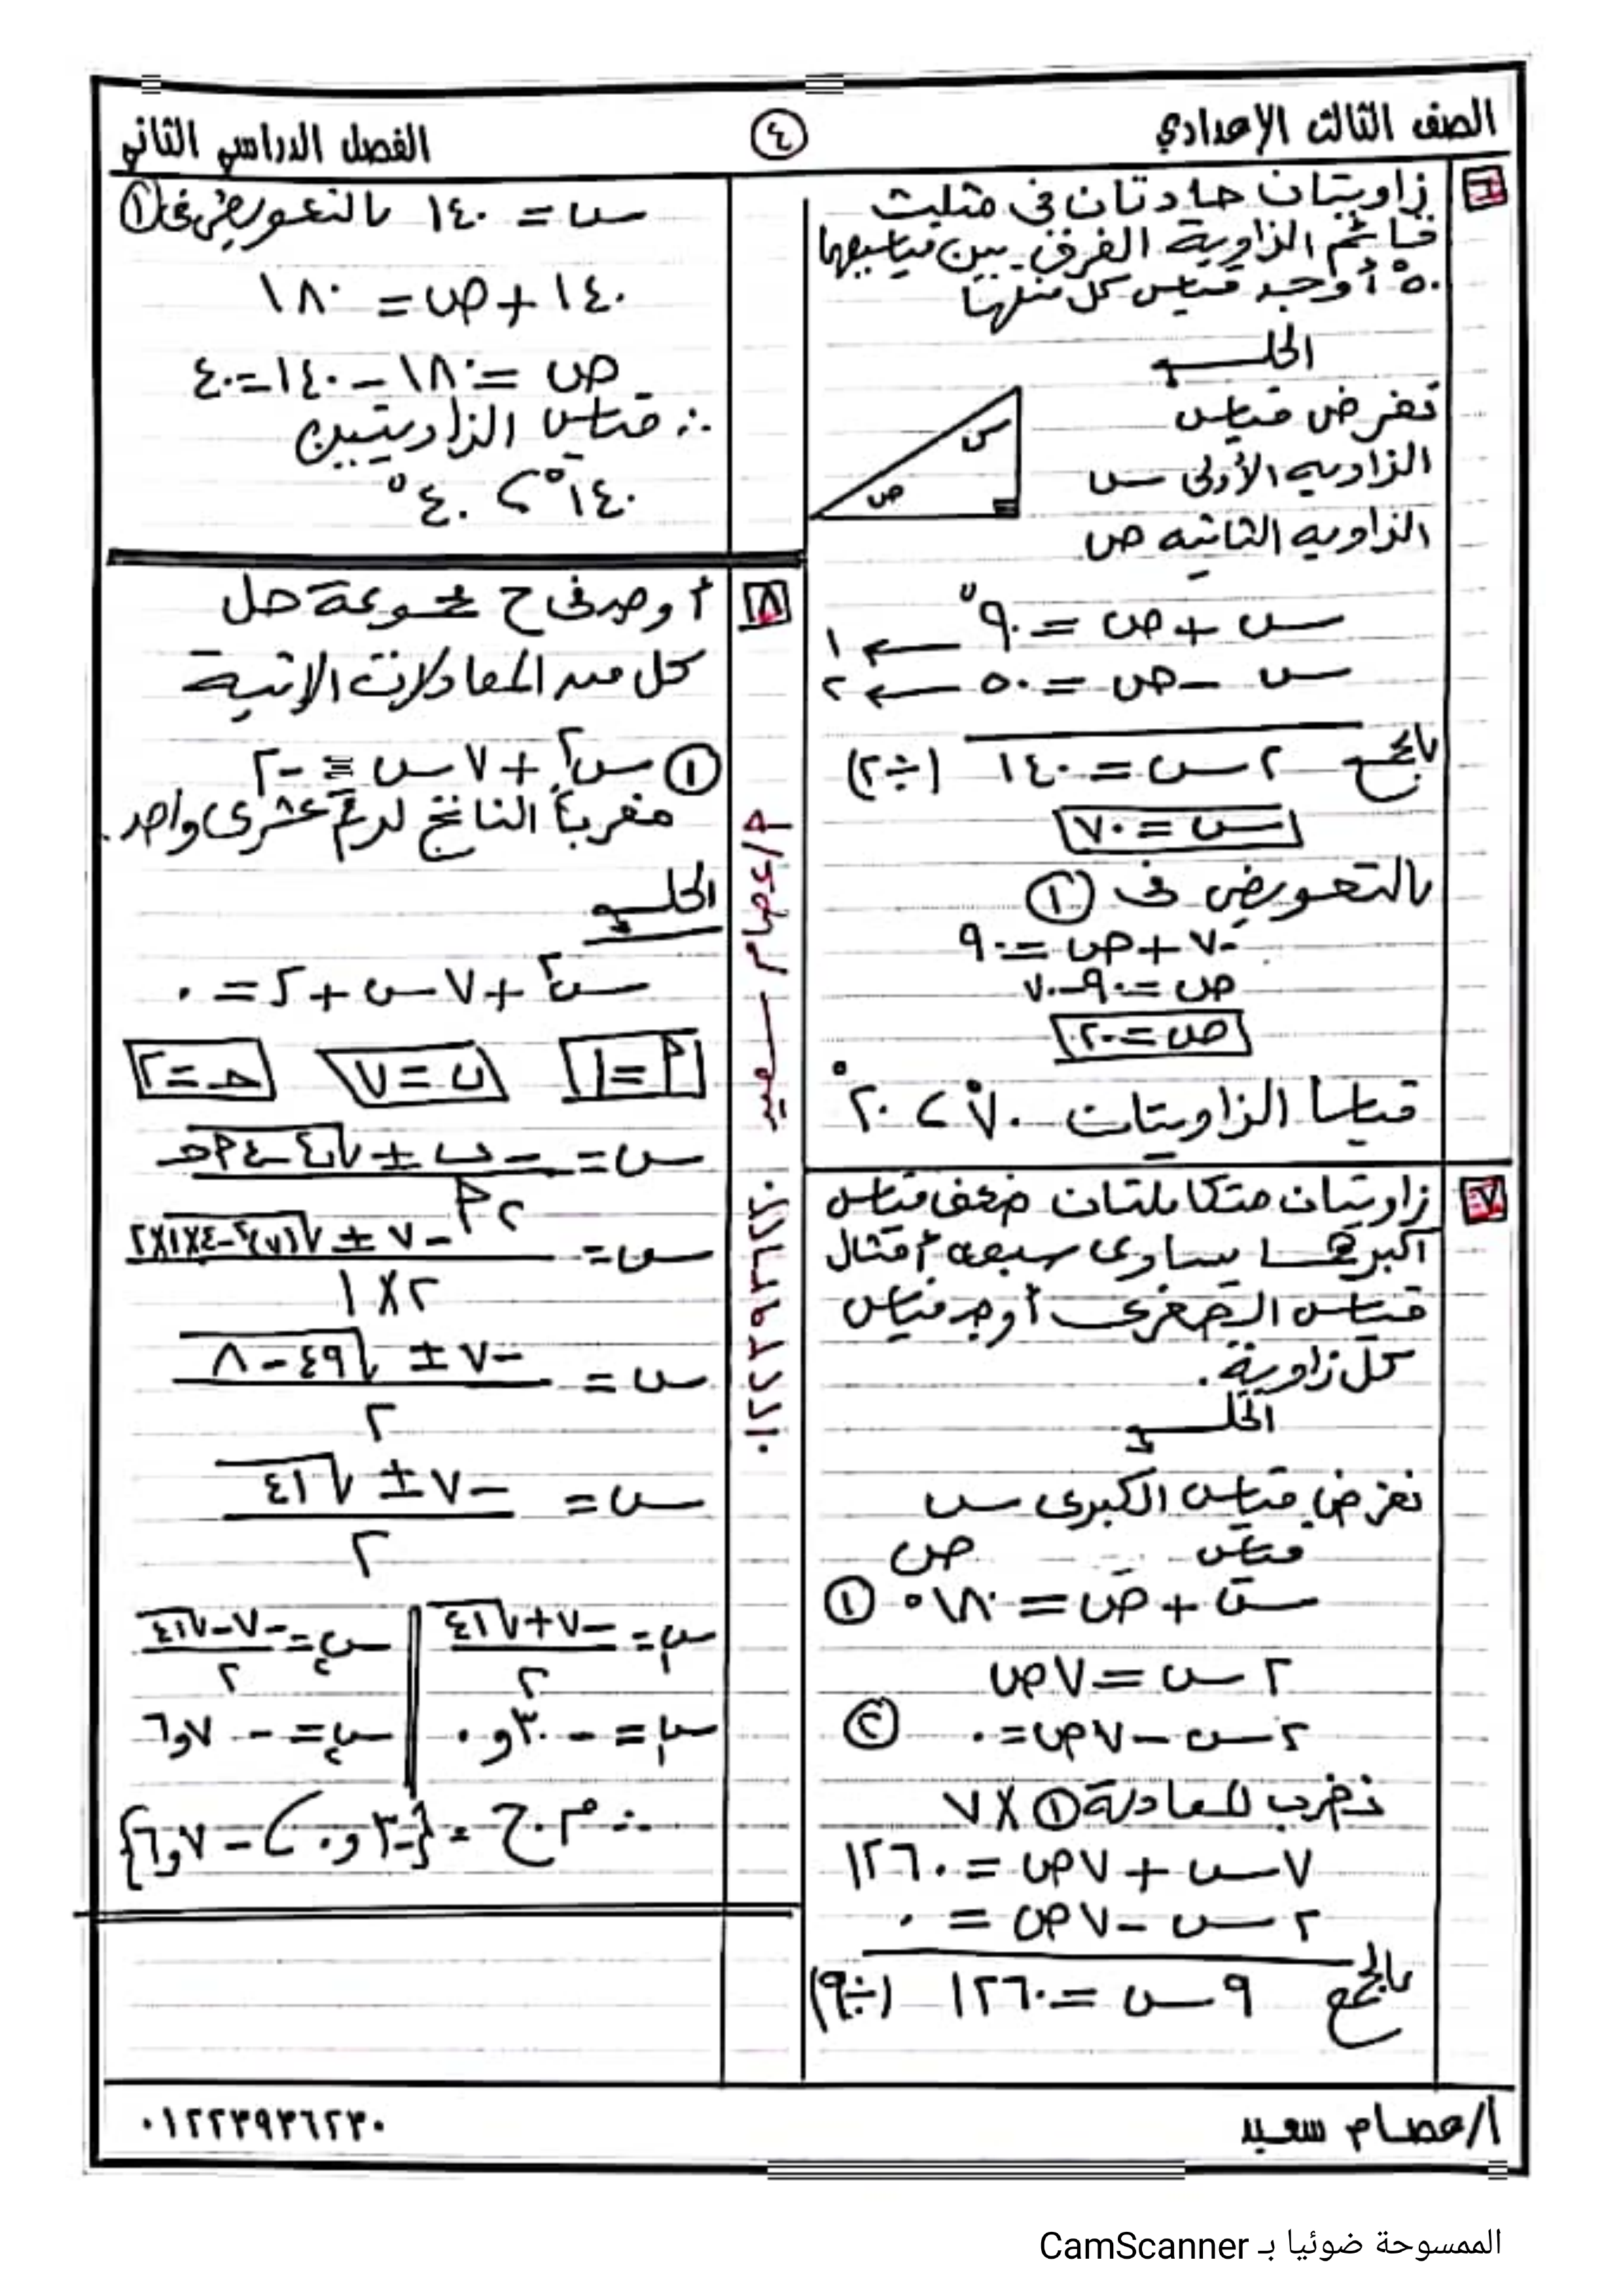 الصف الثالث الإعدادي
٤
الفصل الدراسي الثاني
٦
زاويتان حادتان فى مثلث
قائم الزاوية الفرق بين قياسيهما
٥٠° أوجد قياس كل منهما
الحل
نفرض قياس
الزاويه الأولى س
الزاويه الثانيه ص
س
ص
س + ص = ٩٠° ← ١
س - ص = ٥٠ ← ٢
بالجمع ٢س = ١٤٠ (÷٢)
س = ٧٠
بالتعويض فى ①
٧٠ + ص = ٩٠
ص = ٩٠ - ٧٠
ص = ٢٠
قياسا الزاويتان ٧٠° ، ٢٠°
٧
زاويتان متكاملتان ضعف قياس
أكبرهما يساوى سبعه أمثال
قياس الصغرى أوجد قياس
كل زاوية.
الحل
نفرض قياس الكبرى س
قياس ص
س + ص = ١٨٠° ①
٢س = ٧ص
٢س - ٧ص = ٠ ②
نضرب المعادلة ① × ٧
٧س + ٧ص = ١٢٦٠
٢س - ٧ص = ٠
بالجمع ٩س = ١٢٦٠ (÷٩)
س = ١٤٠ بالتعويض فى ①
١٤٠ + ص = ١٨٠
ص = ١٨٠ - ١٤٠ = ٤٠
∴ قياس الزاويتين
١٤٠° ، ٤٠°
٨
أوجد فى ح مجموعة حل
كل من المعادلات الاتية
① س² + ٧س = -٢
مقرباً الناتج لرقم عشرى واحد.
الحل
س² + ٧س + ٢ = ٠
أ = ١ ب = ٧ حـ = ٢
س = (-ب ± √(ب² - ٤أحـ)) / ٢أ
س = (-٧ ± √((٧)² - ٤×١×٢)) / ٢×١
س = (-٧ ± √(٤٩ - ٨)) / ٢
س = (-٧ ± √٤١) / ٢
س١ = (-٧ + √٤١) / ٢ | س٢ = (-٧ - √٤١) / ٢
س١ = -٣٠و٠ | س٢ = -٧و٦
∴ م.ح = {-٣و٠ ، -٧و٦}
أ/عصام سعيد
٠١٢٢٣٩٣٦٢٣٠
أ/عصام سعيد
٠١٢٢٣٩٣٦٢٣٠
الممسوحة ضوئيا بـ CamScanner